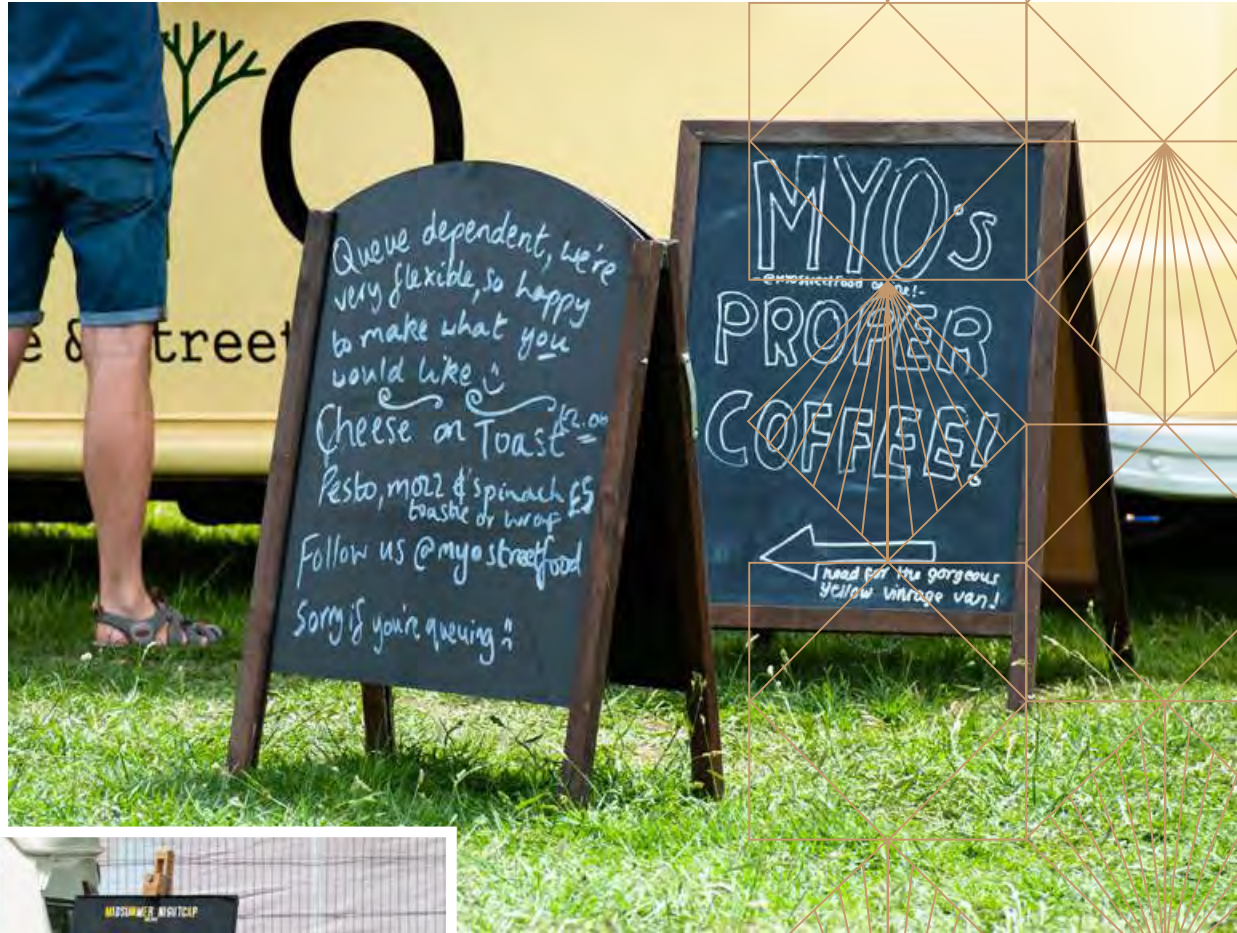 e & Street
Queue dependent, we're
very flexible, so happy
to make what you
would like
Cheese on Toast £2.00
Pesto, mozz & spinach £5
toastie or wrap
Follow us @myostreetfood
Sorry if you're queuing
MYO's
@myostreetfood online!
PROPER
COFFEE!
head for the gorgeous
yellow vintage van!
MIDSUMMER NIGHTCAP